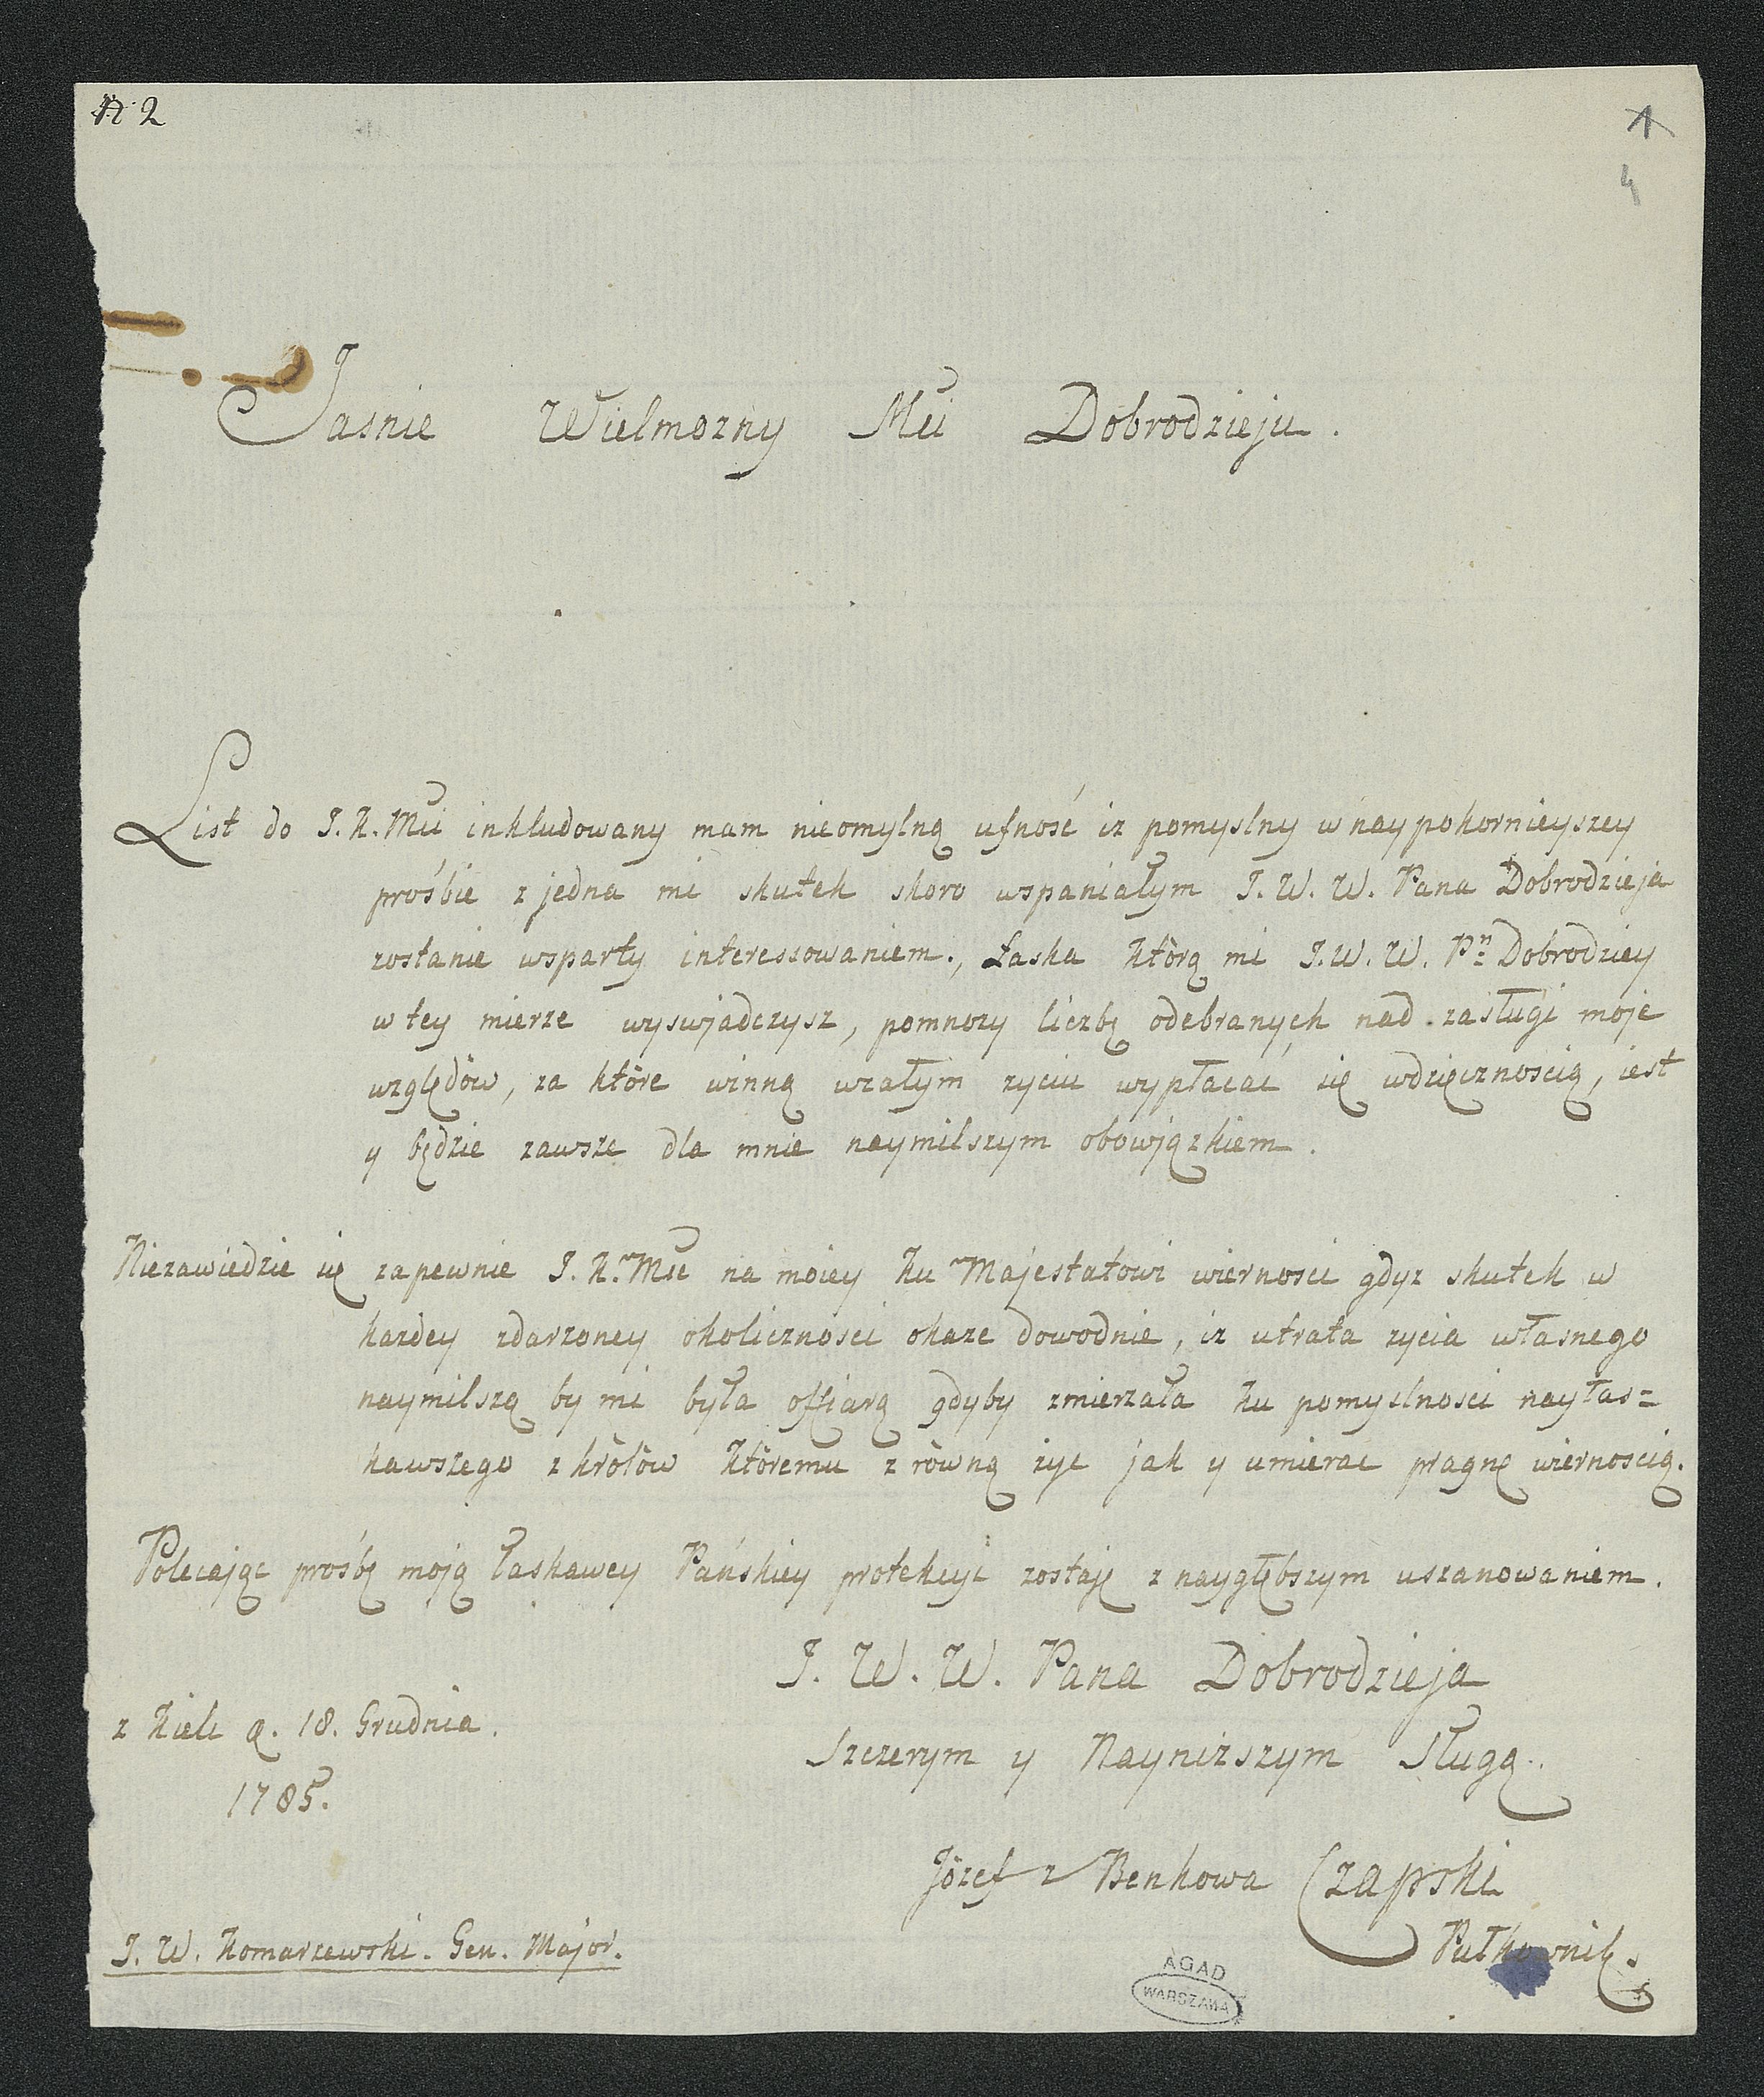 № 2
1
4
Jasnie Wielmozny Mci Dobrodzieju.
List do J. K. Mci inkludowany mam nieomylną ufność iz pomyslny w naypokornieyszey
prośbie zjedna mi skutek skoro wspaniałym J. W. W. Pana Dobrodzieja
zostanie wsparty interessowaniem., Łaska którą mi J. W. W. Pn Dobrodziey
w tey mierze wyswjadczysz, pomnozy liczbę odebranych nad zasługi moje
względów, za które winną wcałym zyciu wypłacać się wdzięcznoscią, iest
y będzie zawsze dla mnie naymilszym obowjązkiem.
Niezawiedzie się zapewnie J. K. Mść na moiey ku Majestatowi wiernosci gdyz skutek w
kazdey zdarzoney okolicznosci okaze dowodnie, iz utrata zycia własnego
naymilszą by mi była offiarą gdyby zmierzała ku pomyslnosci nayłas=
kawszego z królów któremu z równą zyc jak y umierac pragnę wiernoscią.
Polecając prośbę moją łaskawey Pańskiey protekcyi zostaję z naygłębszym uszanowaniem.
J. W. W. Pana Dobrodzieja
z Kielc d. 18. Grudnia.
Szczerym y Naynizszym Sługą.
1785.
Józef z Benkowa Czapski
Pułkownik.
J. W. Komarzewski. Gen. Major.
AGAD
WARSZAWA